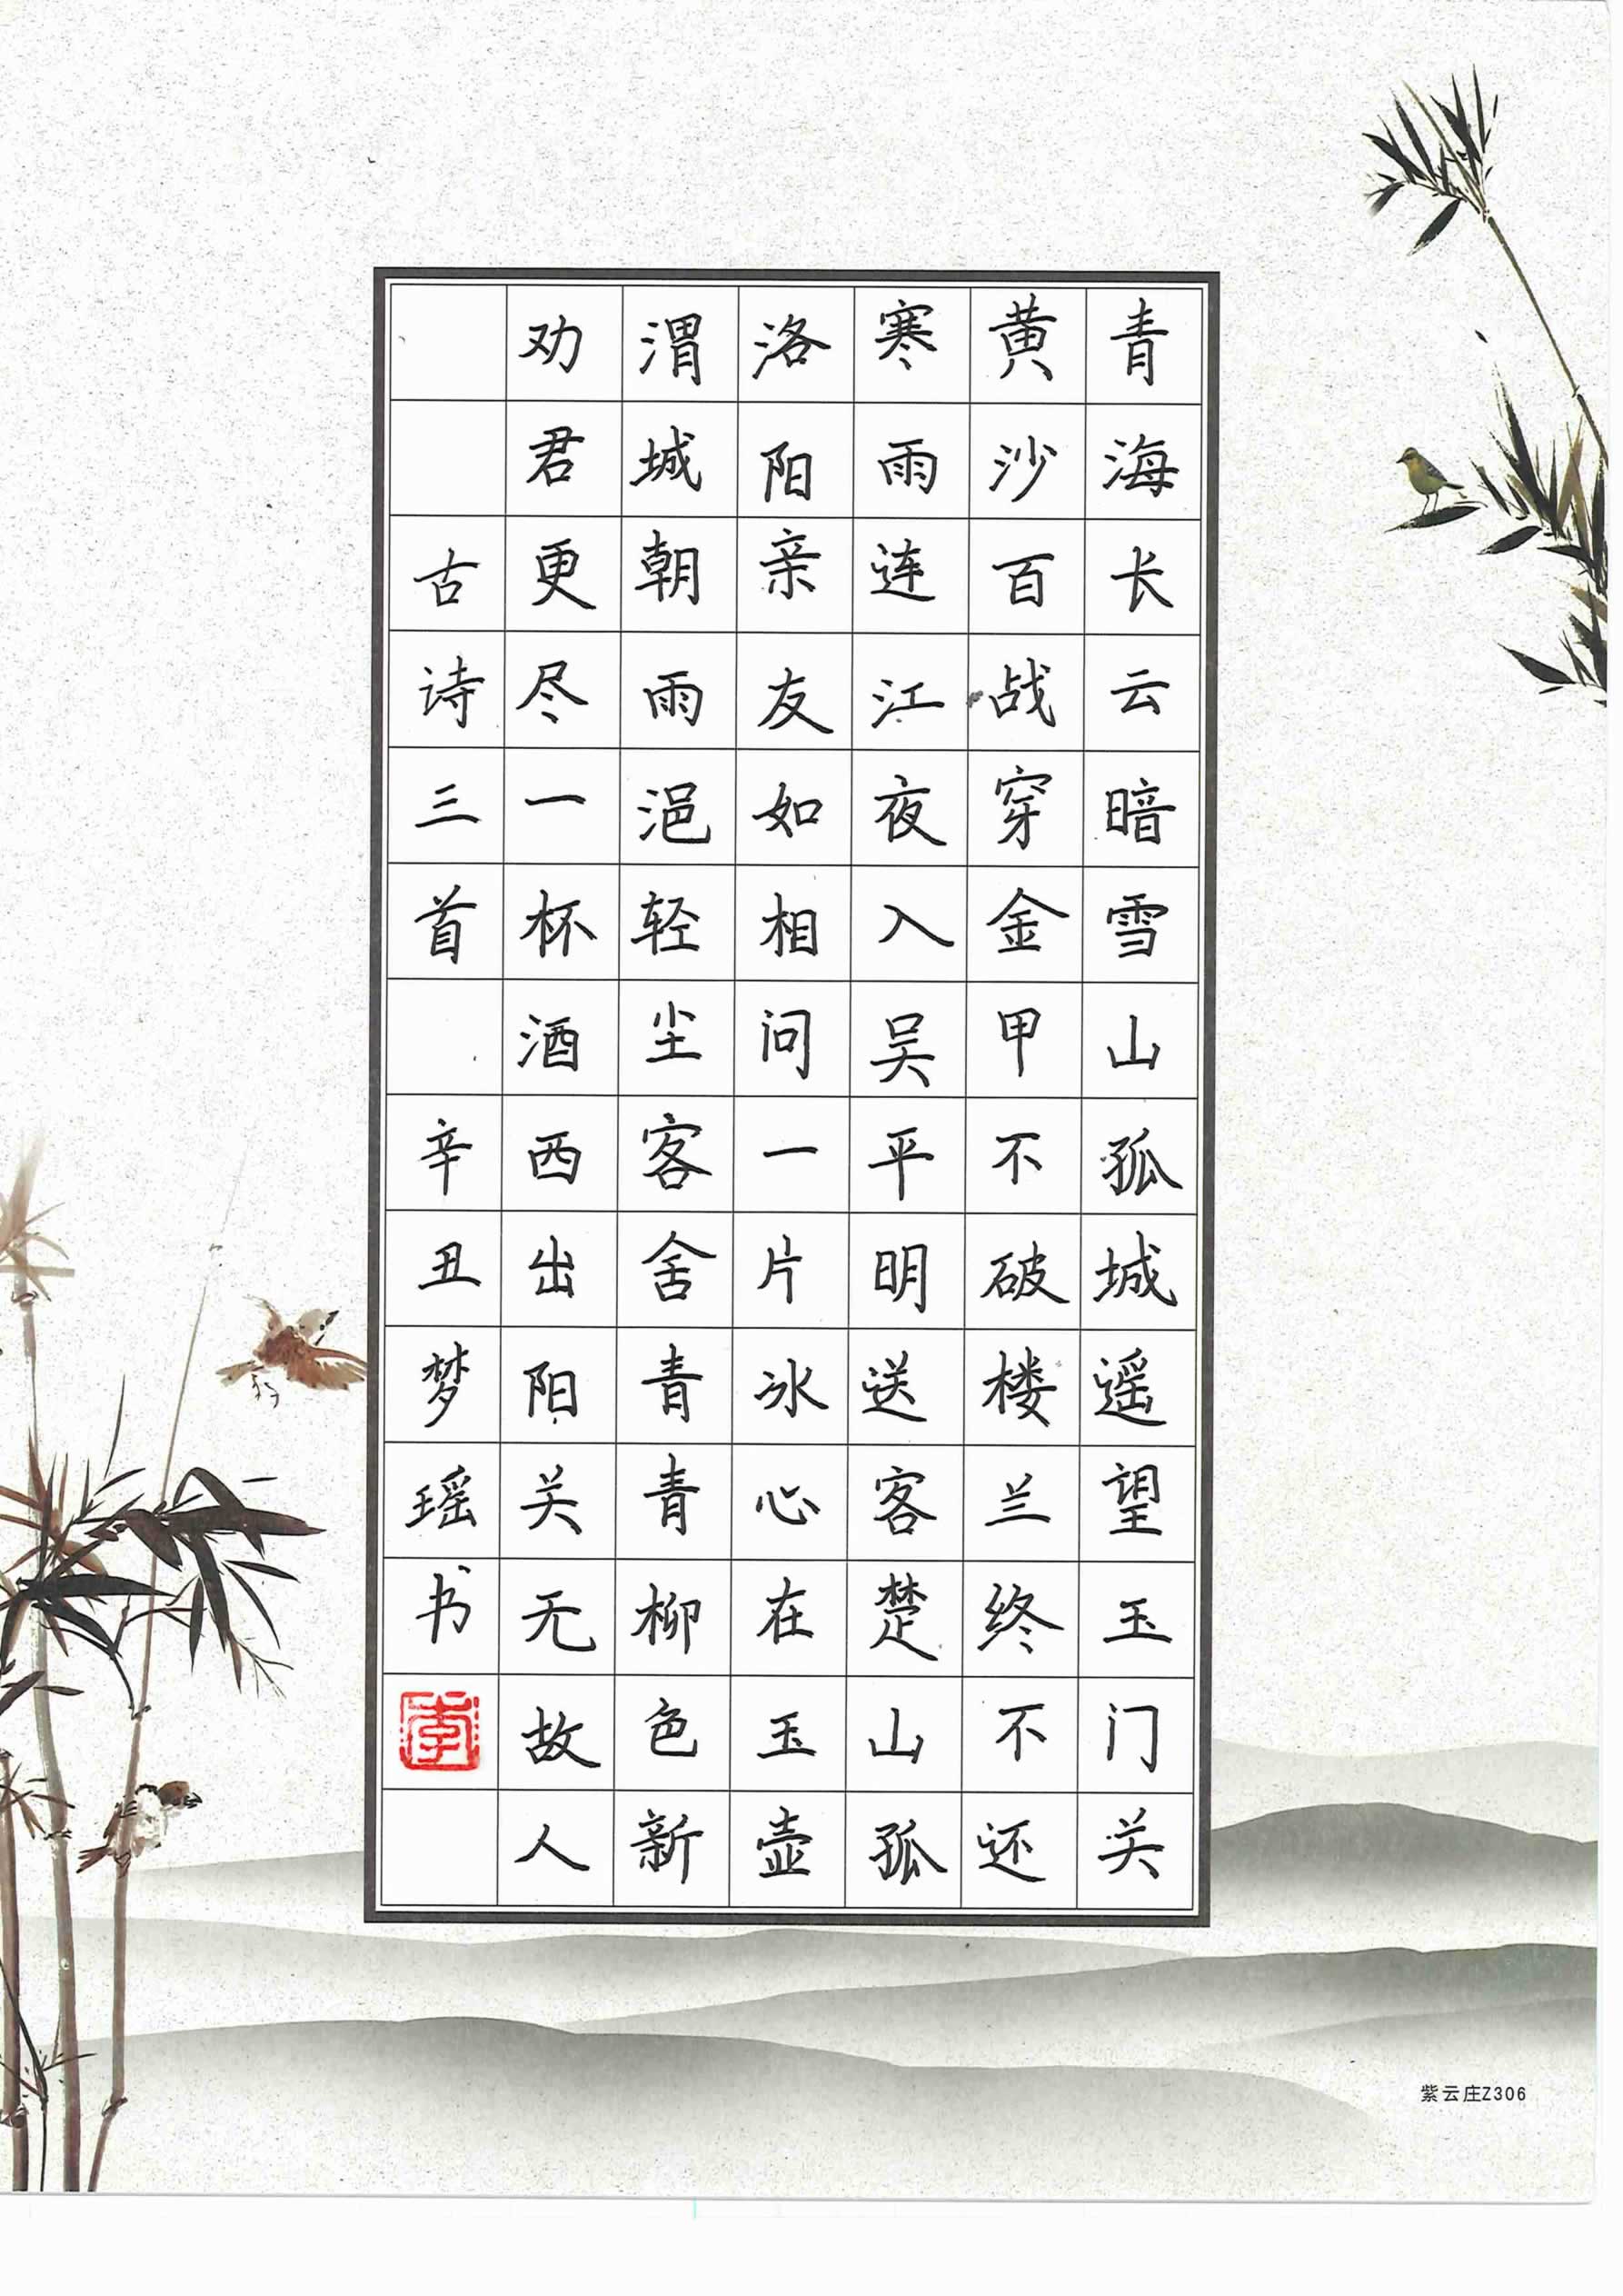 青海长云暗雪山孤城遥望玉门关
黄沙百战穿金甲不破楼兰终不还
寒雨连江夜入吴平明送客楚山孤
洛阳亲友如相问一片冰心在玉壶
渭城朝雨浥轻尘客舍青青柳色新
劝君更尽一杯酒西出阳关无故人
古诗三首 辛丑梦瑶书
李
紫云庄Z306